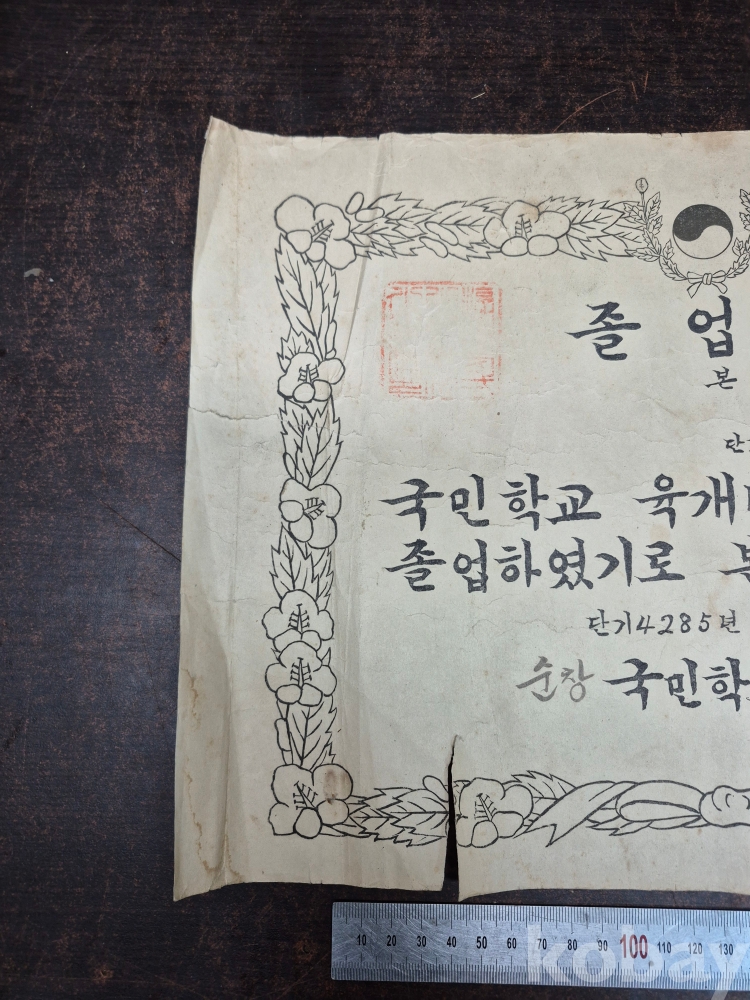 졸 업
본
단
국민학교 육개
졸업하였기로
단기4285년
순창 국민학
10 20 30 40 50 60 70 80 90 100 110 120 130
kobay